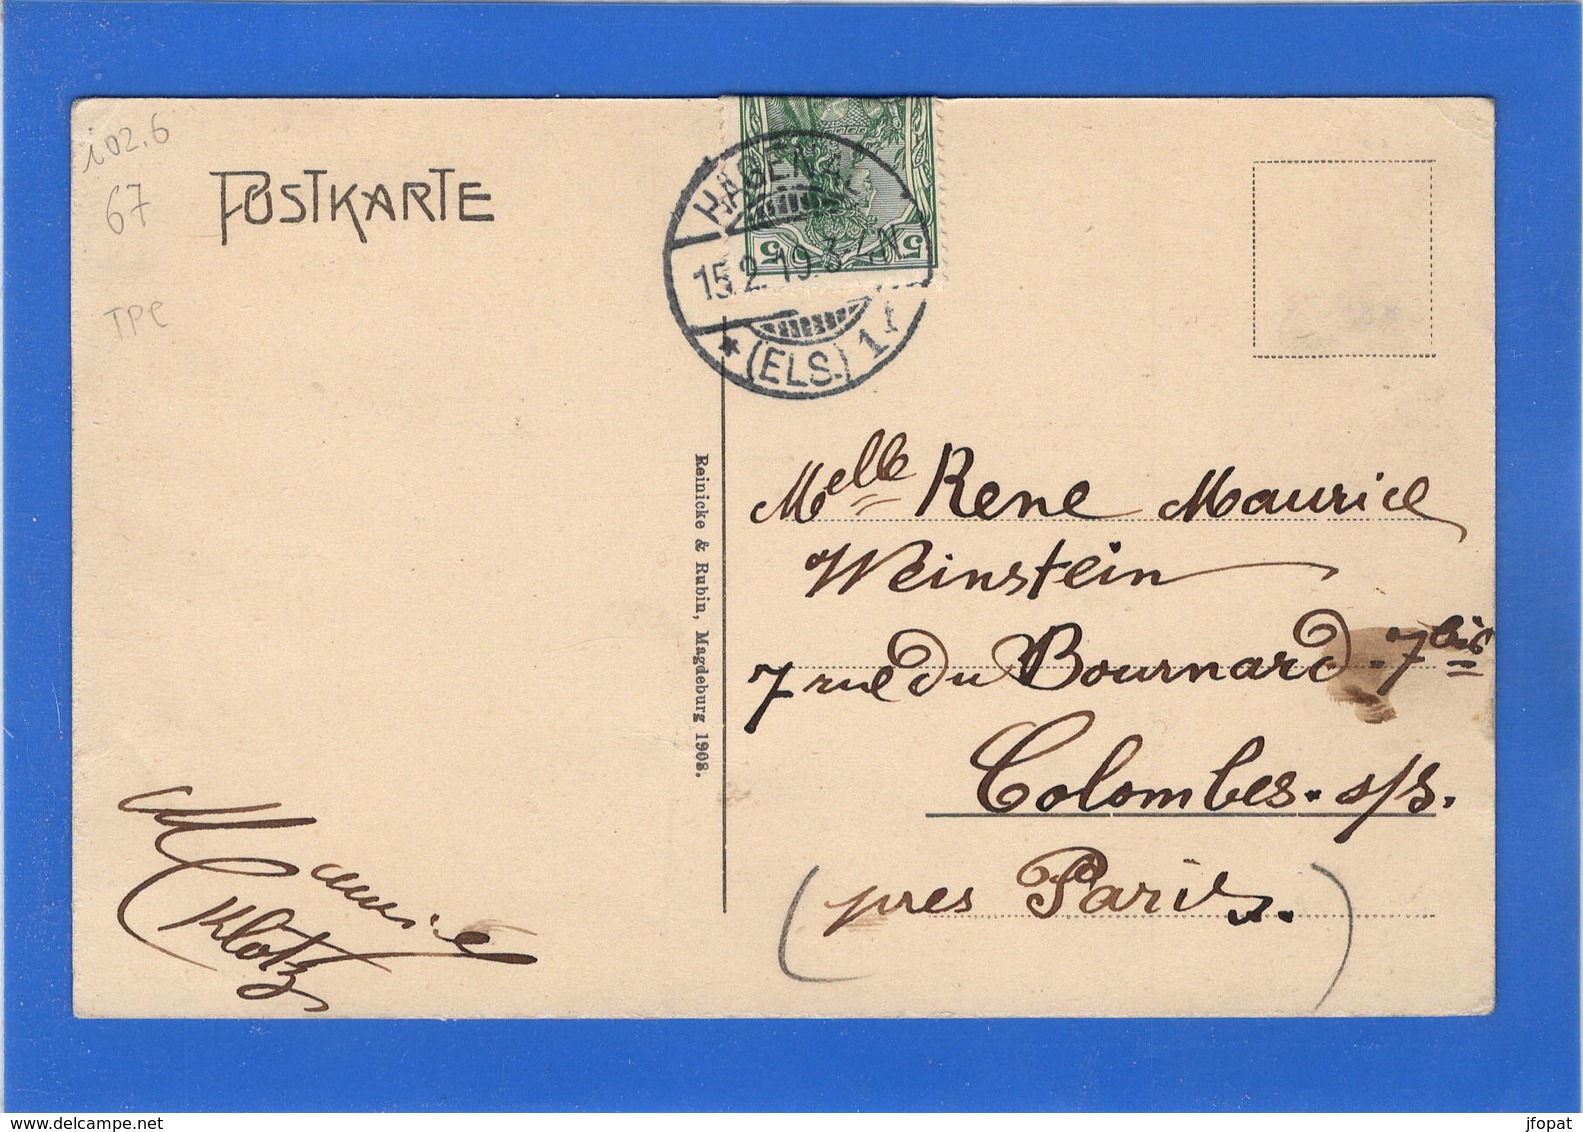 i02.6
67
POSTKARTE
TPC
HAGENAU
15.2.10.
(ELS.) 1 f
5 5
Reinicke & Rubin, Magdeburg 1908.
Melle Rene Maurice
Weinstein
7 rue du Bournard. 7 bis
Colombes. s/s.
(pres Paris.)
Maurice
Klotz
delcampe.net
jfopat